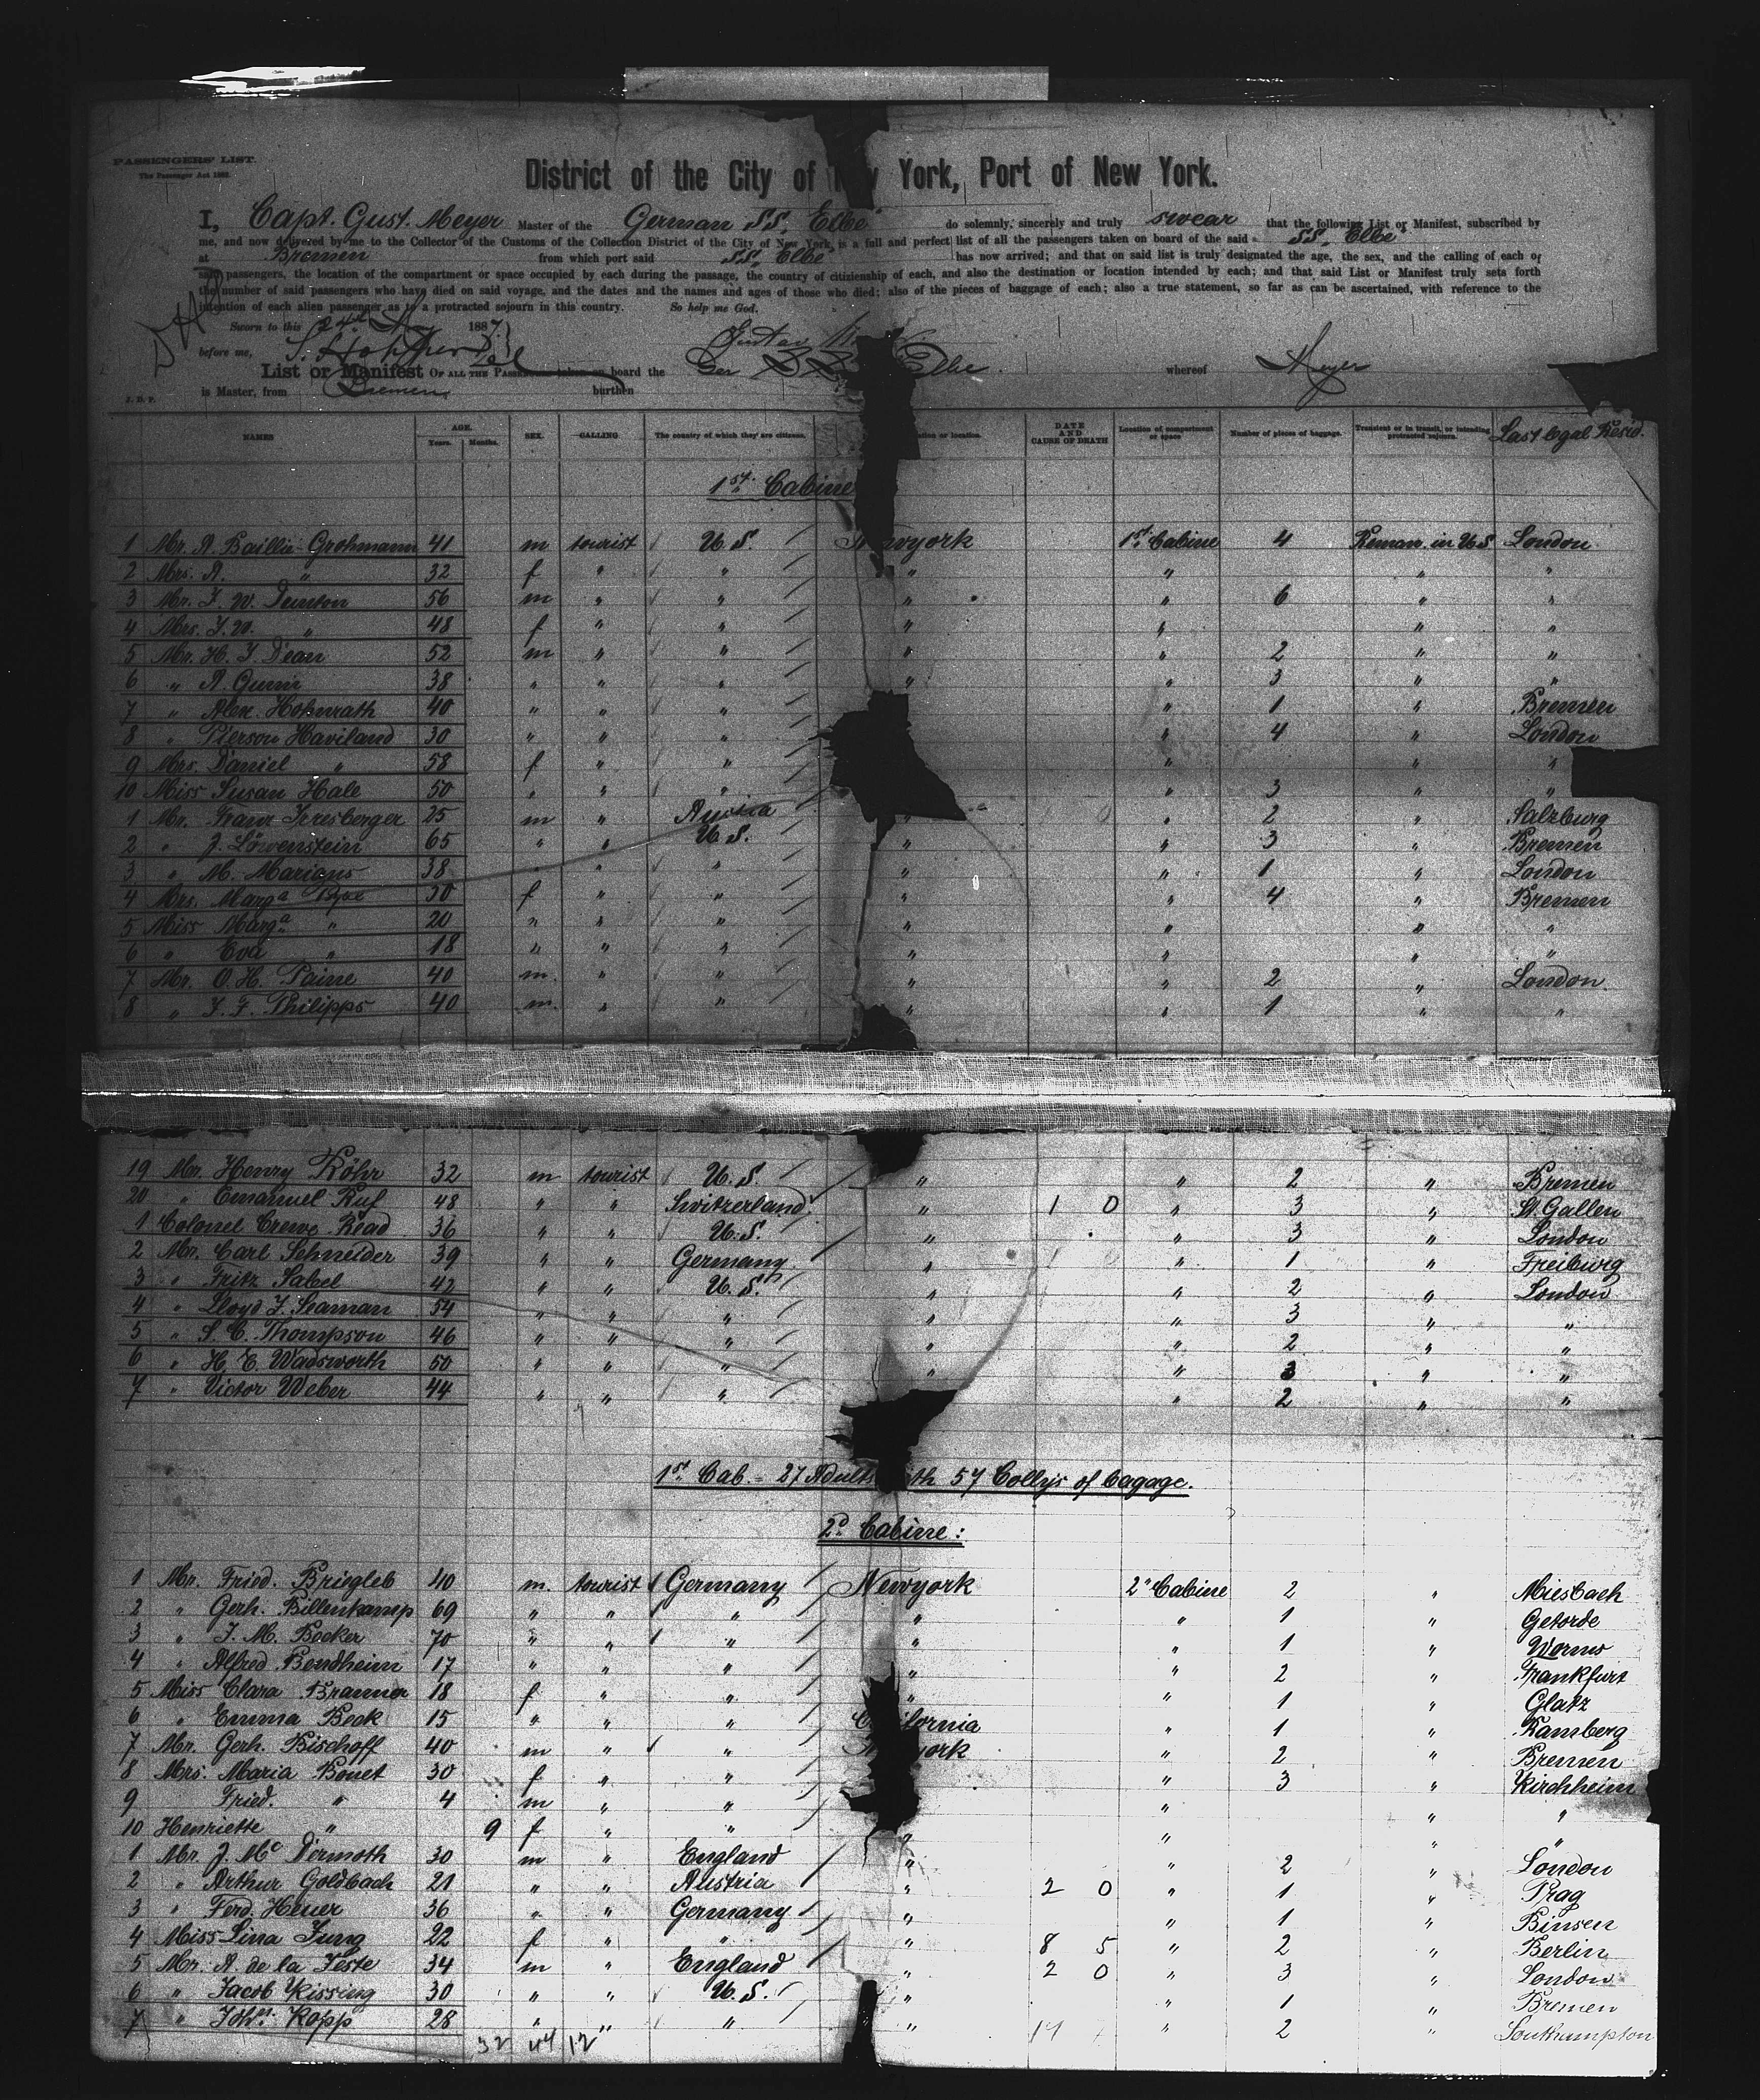 PASSENGERS' LIST.
The Passenger Act 1882.
District of the City of New York, Port of New York.
I, Capt. Gust. Meyer Master of the German SS. Elbe do solemnly, sincerely and truly swear that the following List or Manifest, subscribed by
me, and now delivered by me to the Collector of the Customs of the Collection District of the City of New York, is a full and perfect list of all the passengers taken on board of the said SS. Elbe
at Bremen from which port said SS. Elbe has now arrived; and that on said list is truly designated the age, the sex, and the calling of each of
said passengers, the location of the compartment or space occupied by each during the passage, the country of citizenship of each, and also the destination or location intended by each; and that said List or Manifest truly sets forth
the number of said passengers who have died on said voyage, and the dates and the names and ages of those who died; also of the pieces of baggage of each; also a true statement, so far as can be ascertained, with reference to the
intention of each alien passenger as to a protracted sojourn in this country. So help me God.
Sworn to this 24th May 1887
before me,
List or Manifest OF ALL THE PASSENGERS taken on board the Ger SS Elbe whereof Meyer
is Master, from Bremen burthen
J. D. P.
NAMES AGE. Years. Months. SEX. CALLING The country of which they are citizens. ation or location. DATE AND CAUSE OF DEATH Location of compartment or space Number of pieces of baggage. Transient or in transit, or intending protracted sojourn. Last legal Resid.
1st Cabine
1 Mr. A. Baillie-Grohmann 41 m tourist U.S. Newyork 1st Cabine 4 Reman. in U.S London
2 Mrs. A. " 32 f " " " " " "
3 Mr. J. W. 56 m " " " " 6 " "
4 Mrs. J. W. " 48 f " " " " " "
5 Mr. H. J. Dean 52 m " " " " 2 " "
6 " A. 38 " " " " " 3 " "
7 " Alex. Hohnrath 40 " " " " 1 " Bremen
8 " Pierson Haviland 30 " " " " 4 " London
9 Mrs. Daniel " 58 f " " " " "
10 Miss Susan Hale 50 " " " " 3 "
1 Mr. Franz Irresberger 25 m " Austria " " 2 " Salzburg
2 " J. Löwenstein 65 " " U.S. " " 3 " Bremen
3 " M. Marians 38 " " " " " 1 " London
4 Mrs. Marga 30 f " " " " 4 " Bremen
5 Miss Marga " 20 " " " " " " "
6 " Eva " 18 " " " " " " "
7 Mr. O. H. Paine 40 m. " " " " 2 " London
8 " J. F. Philipps 40 m. " " " " 1 " "
19 Mr. Henry Röhr 32 m tourist U.S. " " 2 " Bremen
20 " Emanuel Ruf 48 " " Switzerland " 1 0 " 3 " St. Gallen
1 Colonel Crewe Read 36 " " U.S. " " 3 " London
2 Mr. Carl Schneider 39 " " Germany " " 1 " Freiburg
3 " Fritz Sabel 42 " " U.S. " " 2 " London
4 " Lloyd J. Seaman 54 " " " " " 3 " "
5 " S. C. Thompson 46 " " " " " 2 " "
6 " H. C. Wadsworth 50 " " " " " 3 " "
7 " Victor Weber 44 " " " " 2 " "
1st Cab. = 27 Adults th 57 Collys of bagage.
2d Cabine:
1 Mr. Fried. Briegleb 40 m. tourist Germany Newyork 2" Cabine 2 " Miesbach
2 " Gerh. Billenkamp 69 " " " " " 1 " Getorde
3 " J. M. Becker 70 " " " " " 1 " Worms
4 " Alfred Bendheim 17 " " " " " 2 " Frankfurt
5 Miss Clara 18 f " " " " 1 " Glatz
6 " Emma Beck 15 " " " California " 1 " Bamberg
7 Mr. Gerh. Bischoff 40 m " " Newyork " 2 " Bremen
8 Mrs. Maria Bouet 30 f " " " 3 " Kirchheim
9 Fried. " 4 m " " " " "
10 Henriette " 9 f " " " " " "
1 Mr. J. Mc Dermoth 30 m " England " " 2 " London
2 " Arthur Goldbach 21 " " Austria " 2 0 " 1 " Prag
3 " Ferd. Heuer 36 " " Germany " " 1 " Binsen
4 Miss Lina Jung 22 f " " " 8 5 " 2 " Berlin
5 Mr. A. de la Feste 34 m " England " 2 0 " 3 " London
6 " Jacob Kissing 30 " " U.S. " " 1 " Bremen
7 " Johs. Kopp 28 " " " " 14 " 2 " Southampton
32 44 12